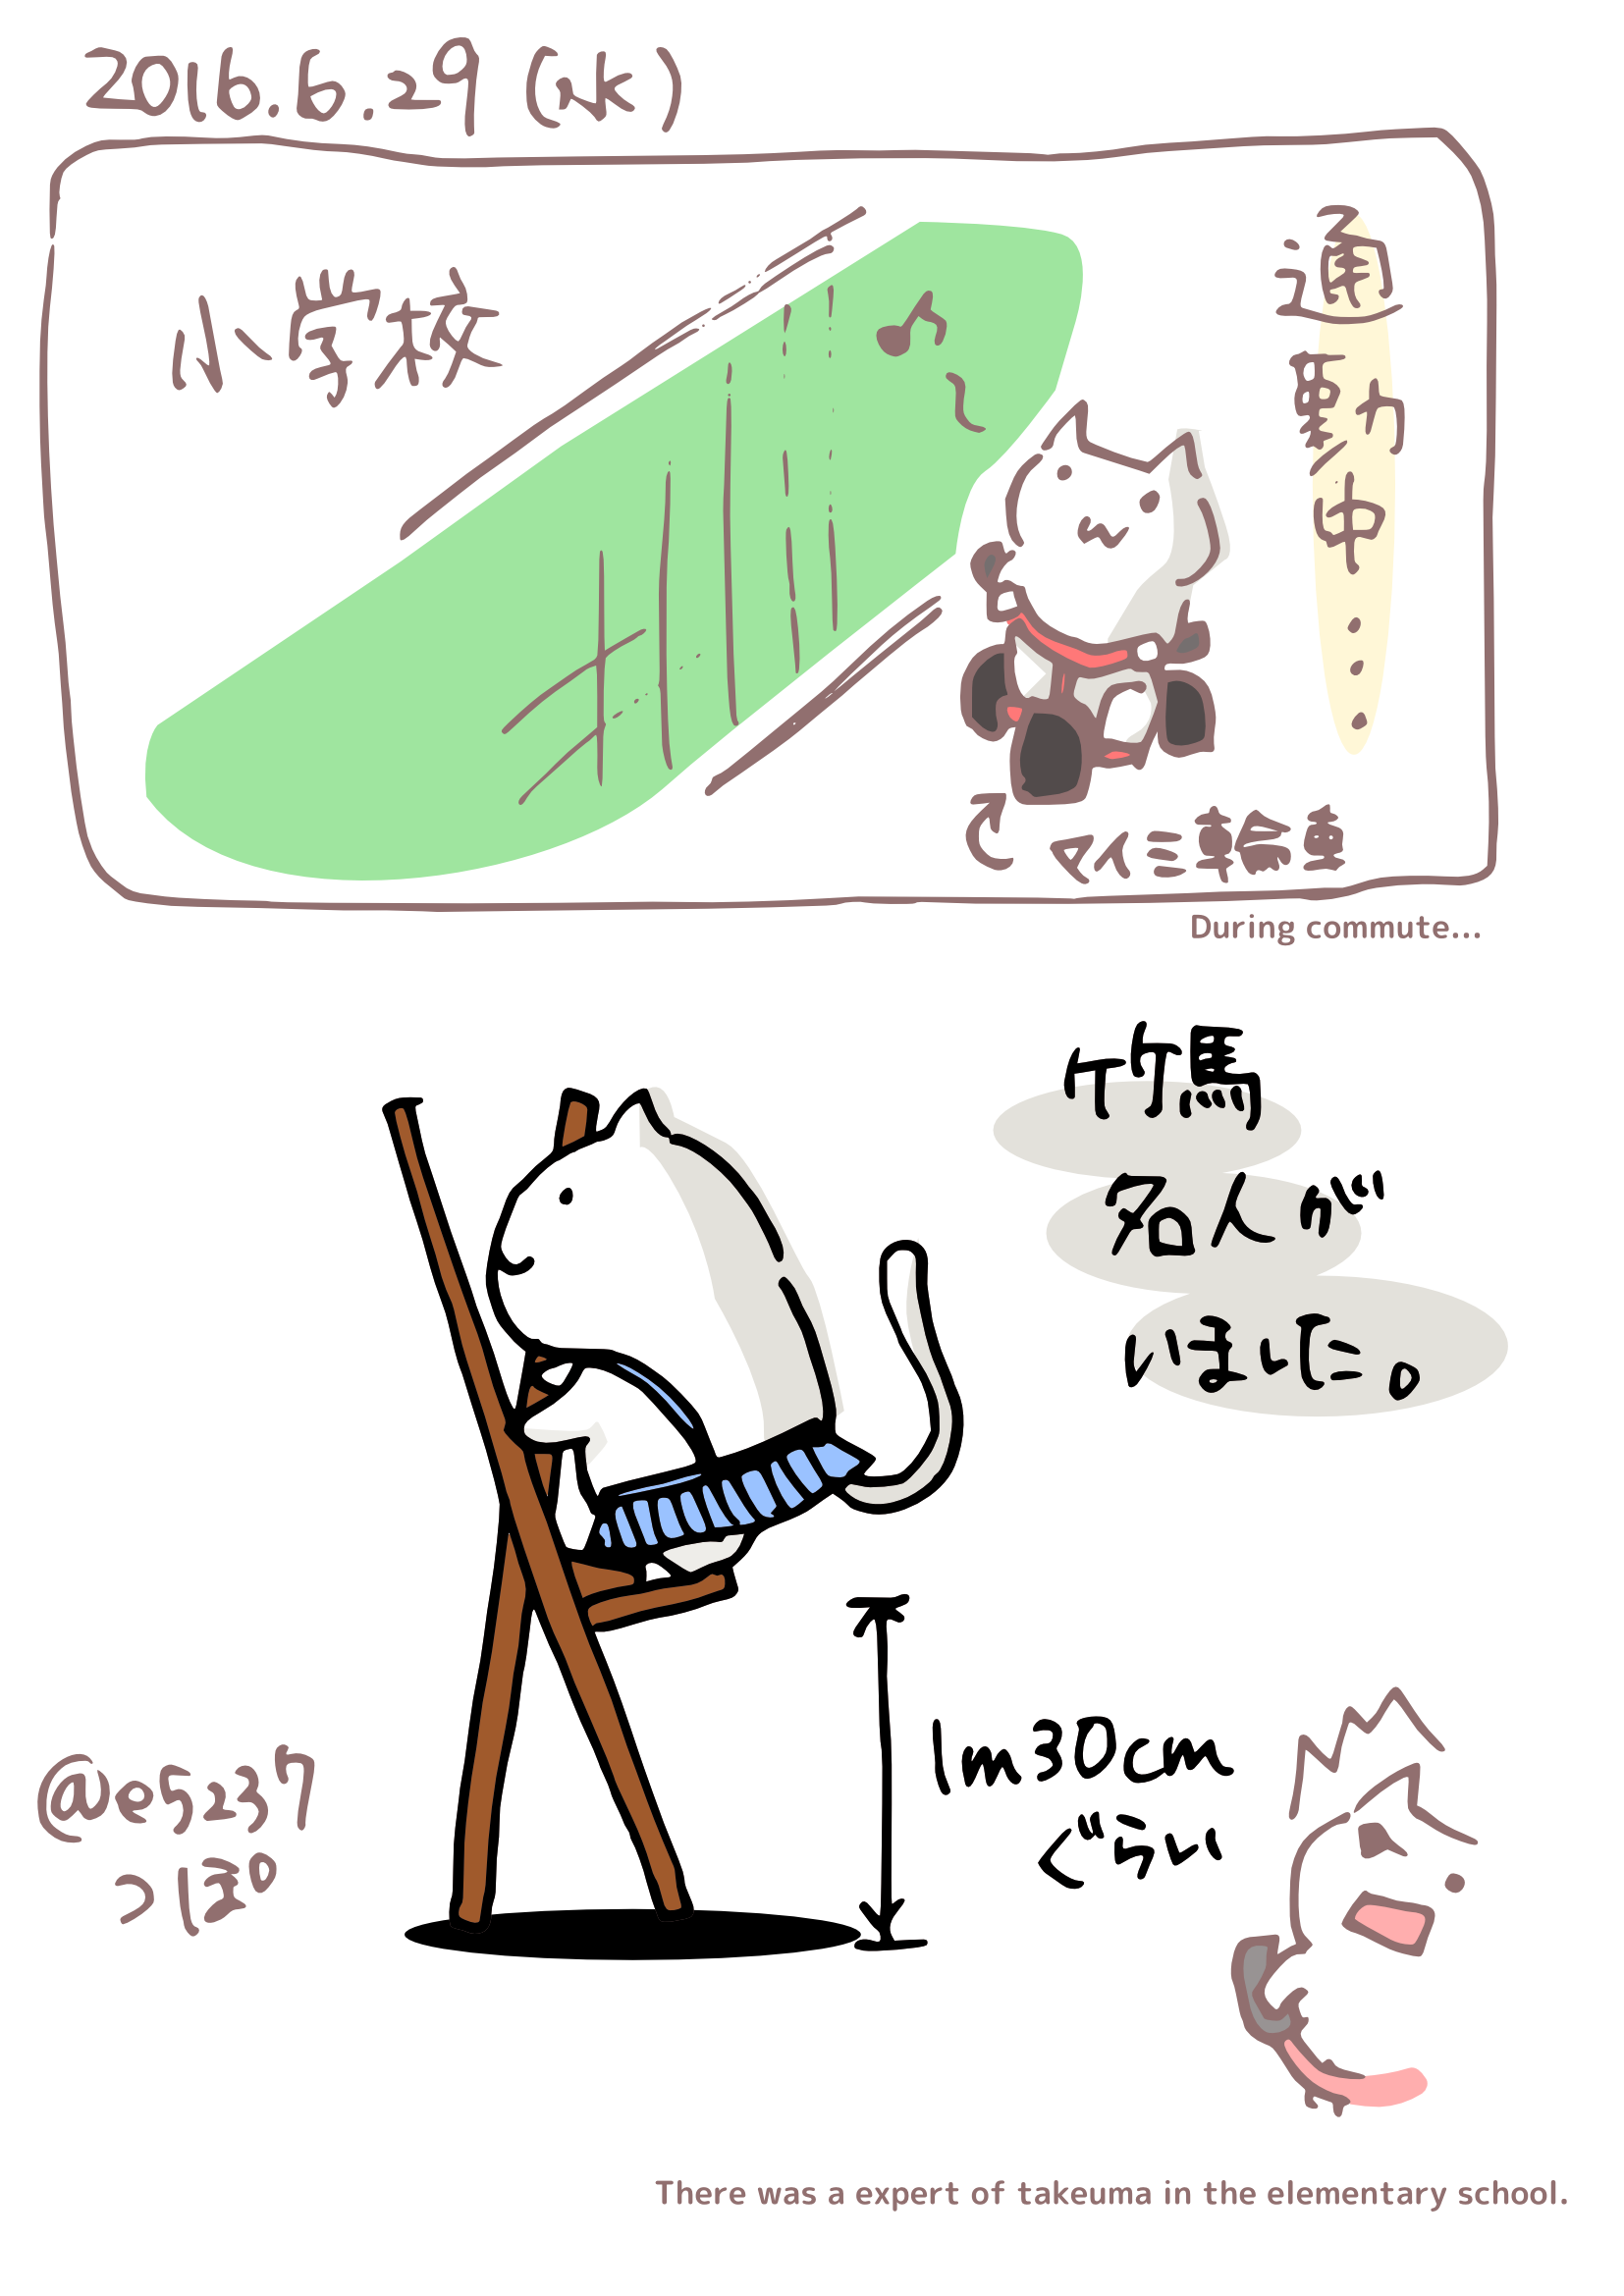 2016.6.29(水)
小学校
通勤中・・・
マイミ車輪車
During commute...
竹馬
名人が
いました。
1m30cm
ぐらい
@e5237
つぽ
There was a expert of takeuma in the elementary school.